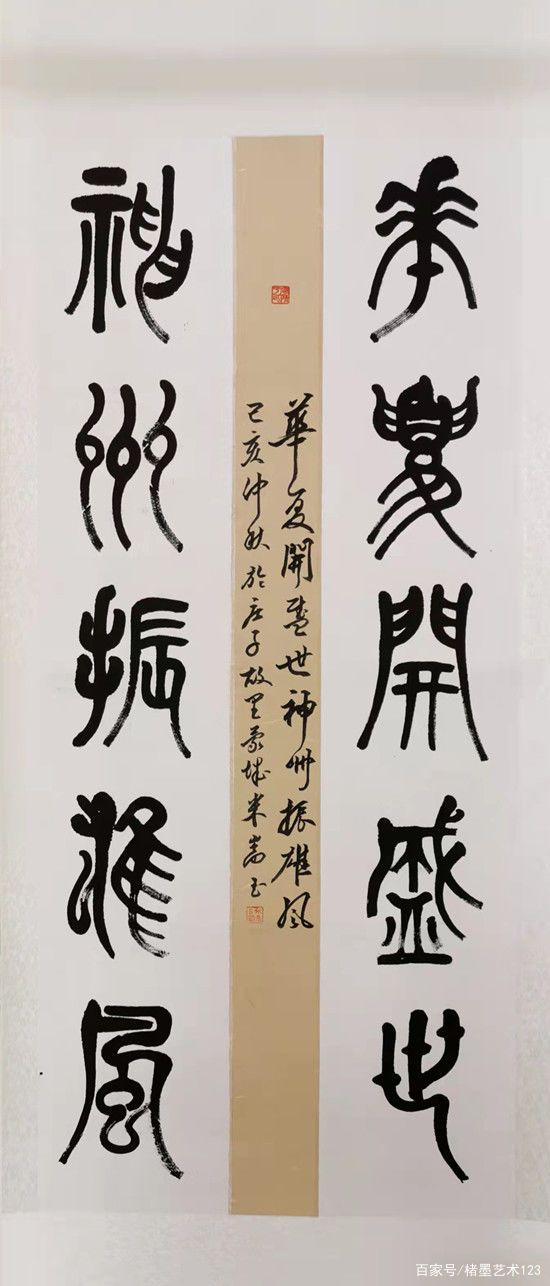 華夏開盛世
華夏開盛世神州振雄風
己亥仲秋於庄子故里蒙城米嵩玉
神州振雄風
百家号/楮墨艺术123